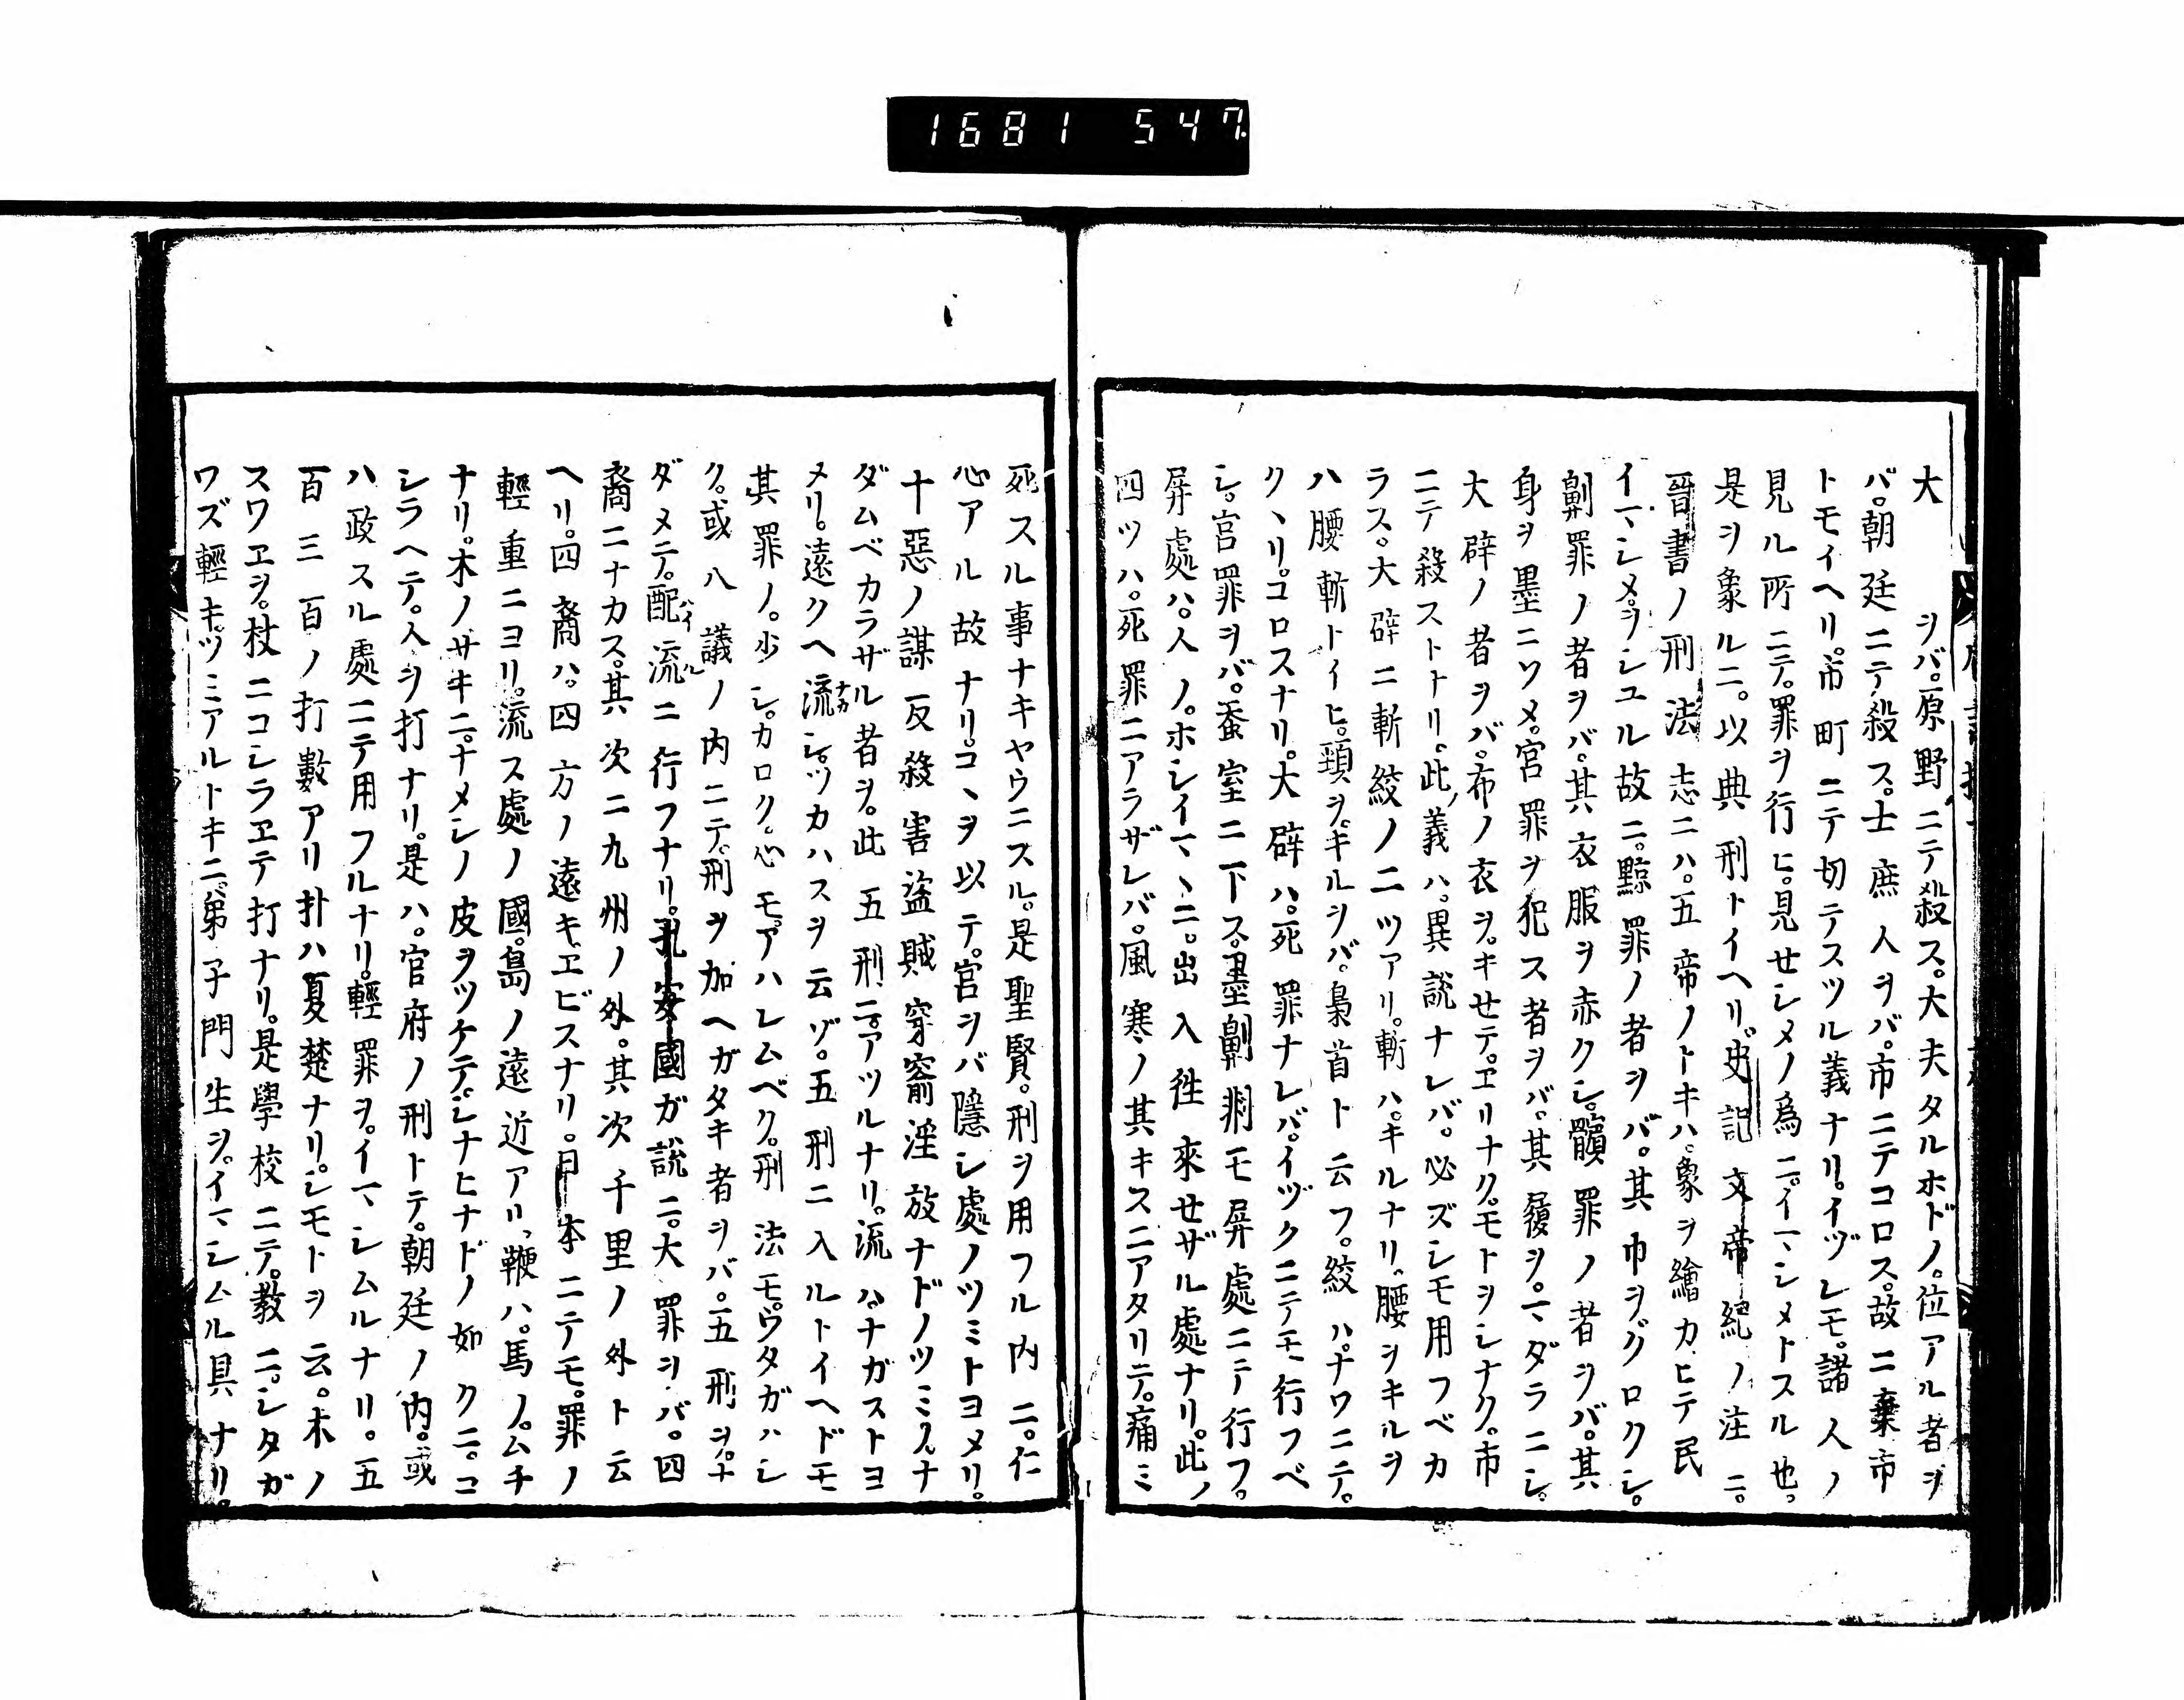 1681 547
大　　ヲバ。原野ニテ殺ス。大夫タルホドノ。位アル者ヲ
バ。朝廷ニテ殺ス。士庶人ヲバ。市ニテコロス。故ニ棄市
トモイヘリ。市町ニテ切テスツル義ナリ。イヅレモ。諸人ノ
見ル所ニテ。罪ヲ行ヒ。見せシメノ為ニ。イマシメトスル也。
是ヲ象ルニ。以典刑トイヘリ。史記文帝紀ノ注ニ。
晉書ノ刑法志ニハ。五帝ノトキハ。象ヲ繪カヒテ民
イマシメヲシユル故ニ。黥罪ノ者ヲバ。其巾ヲ。グロクシ。
劓罪ノ者ヲバ。其衣服ヲ赤クシ。髕罪ノ者ヲバ。其
身ヲ墨ニソメ。宮罪ヲ犯ス者ヲバ。其履ヲ。マダラニシ。
大辟ノ者ヲバ。布ノ衣ヲ。キせテ。エリナク。モトヲシナク。市
ニテ殺ストナリ。此義ハ。異説ナレバ。必ズシモ用フベカ
ラス。大辟ニ斬絞ノ二ツアリ。斬ハ。キルナリ。腰ヲキルヲ
ハ腰斬トイヒ。頸ヲ。キルヲバ。梟首ト云フ。絞ハ。ナワニテ。
クヽリ。コロスナリ。大辟ハ。死罪ナレバ。イヅクニテモ行フベ
シ。宮罪ヲバ。蚕室ニ下ス。墨劓剕モ屏處ニテ行フ。
屏處ハ。人ノ。ホシイマヽニ。出入往來せザル處ナリ。此ノ
四ツハ。死罪ニアラザレバ。風寒ノ其キスニアタリテ。痛ミ
死スル事ナキヤウニスル。是聖賢。刑ヲ用フル内ニ。仁
心アル故ナリ。コヽヲ以テ。宮ヲバ隱シ處ノツミトヨメリ。
十惡ノ謀反殺害盜賊穿窬淫放ナドノツミノ。ナ
ダムベカラザル者ヲ。此五刑ニ。アツルナリ。流ハ。ナガストヨ
メリ。遠クヘ流シ。ツカハスヲ云ゾ。五刑ニ入ルトイヘドモ
其罪ノ。少シ。カロク。心モ。アハレムベク。刑法モ。ウタガハシ
ク。或八議ノ内ニテ。刑ヲ加ヘガタキ者ヲバ。五刑ヲ。ナ
ダメテ。配流ニ行フナリ。孔安國ガ説ニ。大罪ヲバ。四
裔ニナカス。其次ニ九州ノ外。其次千里ノ外ト云
ヘリ。四裔ハ。四方ノ遠キ。エビスナリ。日本ニテモ。罪ノ
輕重ニヨリ。流ス處ノ國。島ノ遠近アリ。鞭ハ。馬ノ。ムチ
ナリ。木ノサキニ。ナメシノ皮ヲツケテ。シナヒナドノ如クニ。コ
シラヘテ。人ヲ打ナリ。是ハ。官府ノ刑トテ。朝廷ノ内。或
ハ政スル處ニテ用フルナリ。輕罪ヲ。イマシムルナリ。五
百三百ノ打數アリ扑ハ夏楚ナリ。シモトヲ云。木ノ
スワエヲ。杖ニコシラエテ打ナリ。是學校ニテ。教ニ。シタガ
ワズ輕キ。ツミアルトキニ。弟子門生ヲ。イマシムル具ナリ。